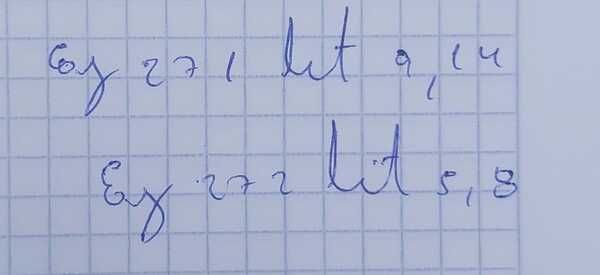 Ey 271 lit 9,14
Ey 272 lit 5,8